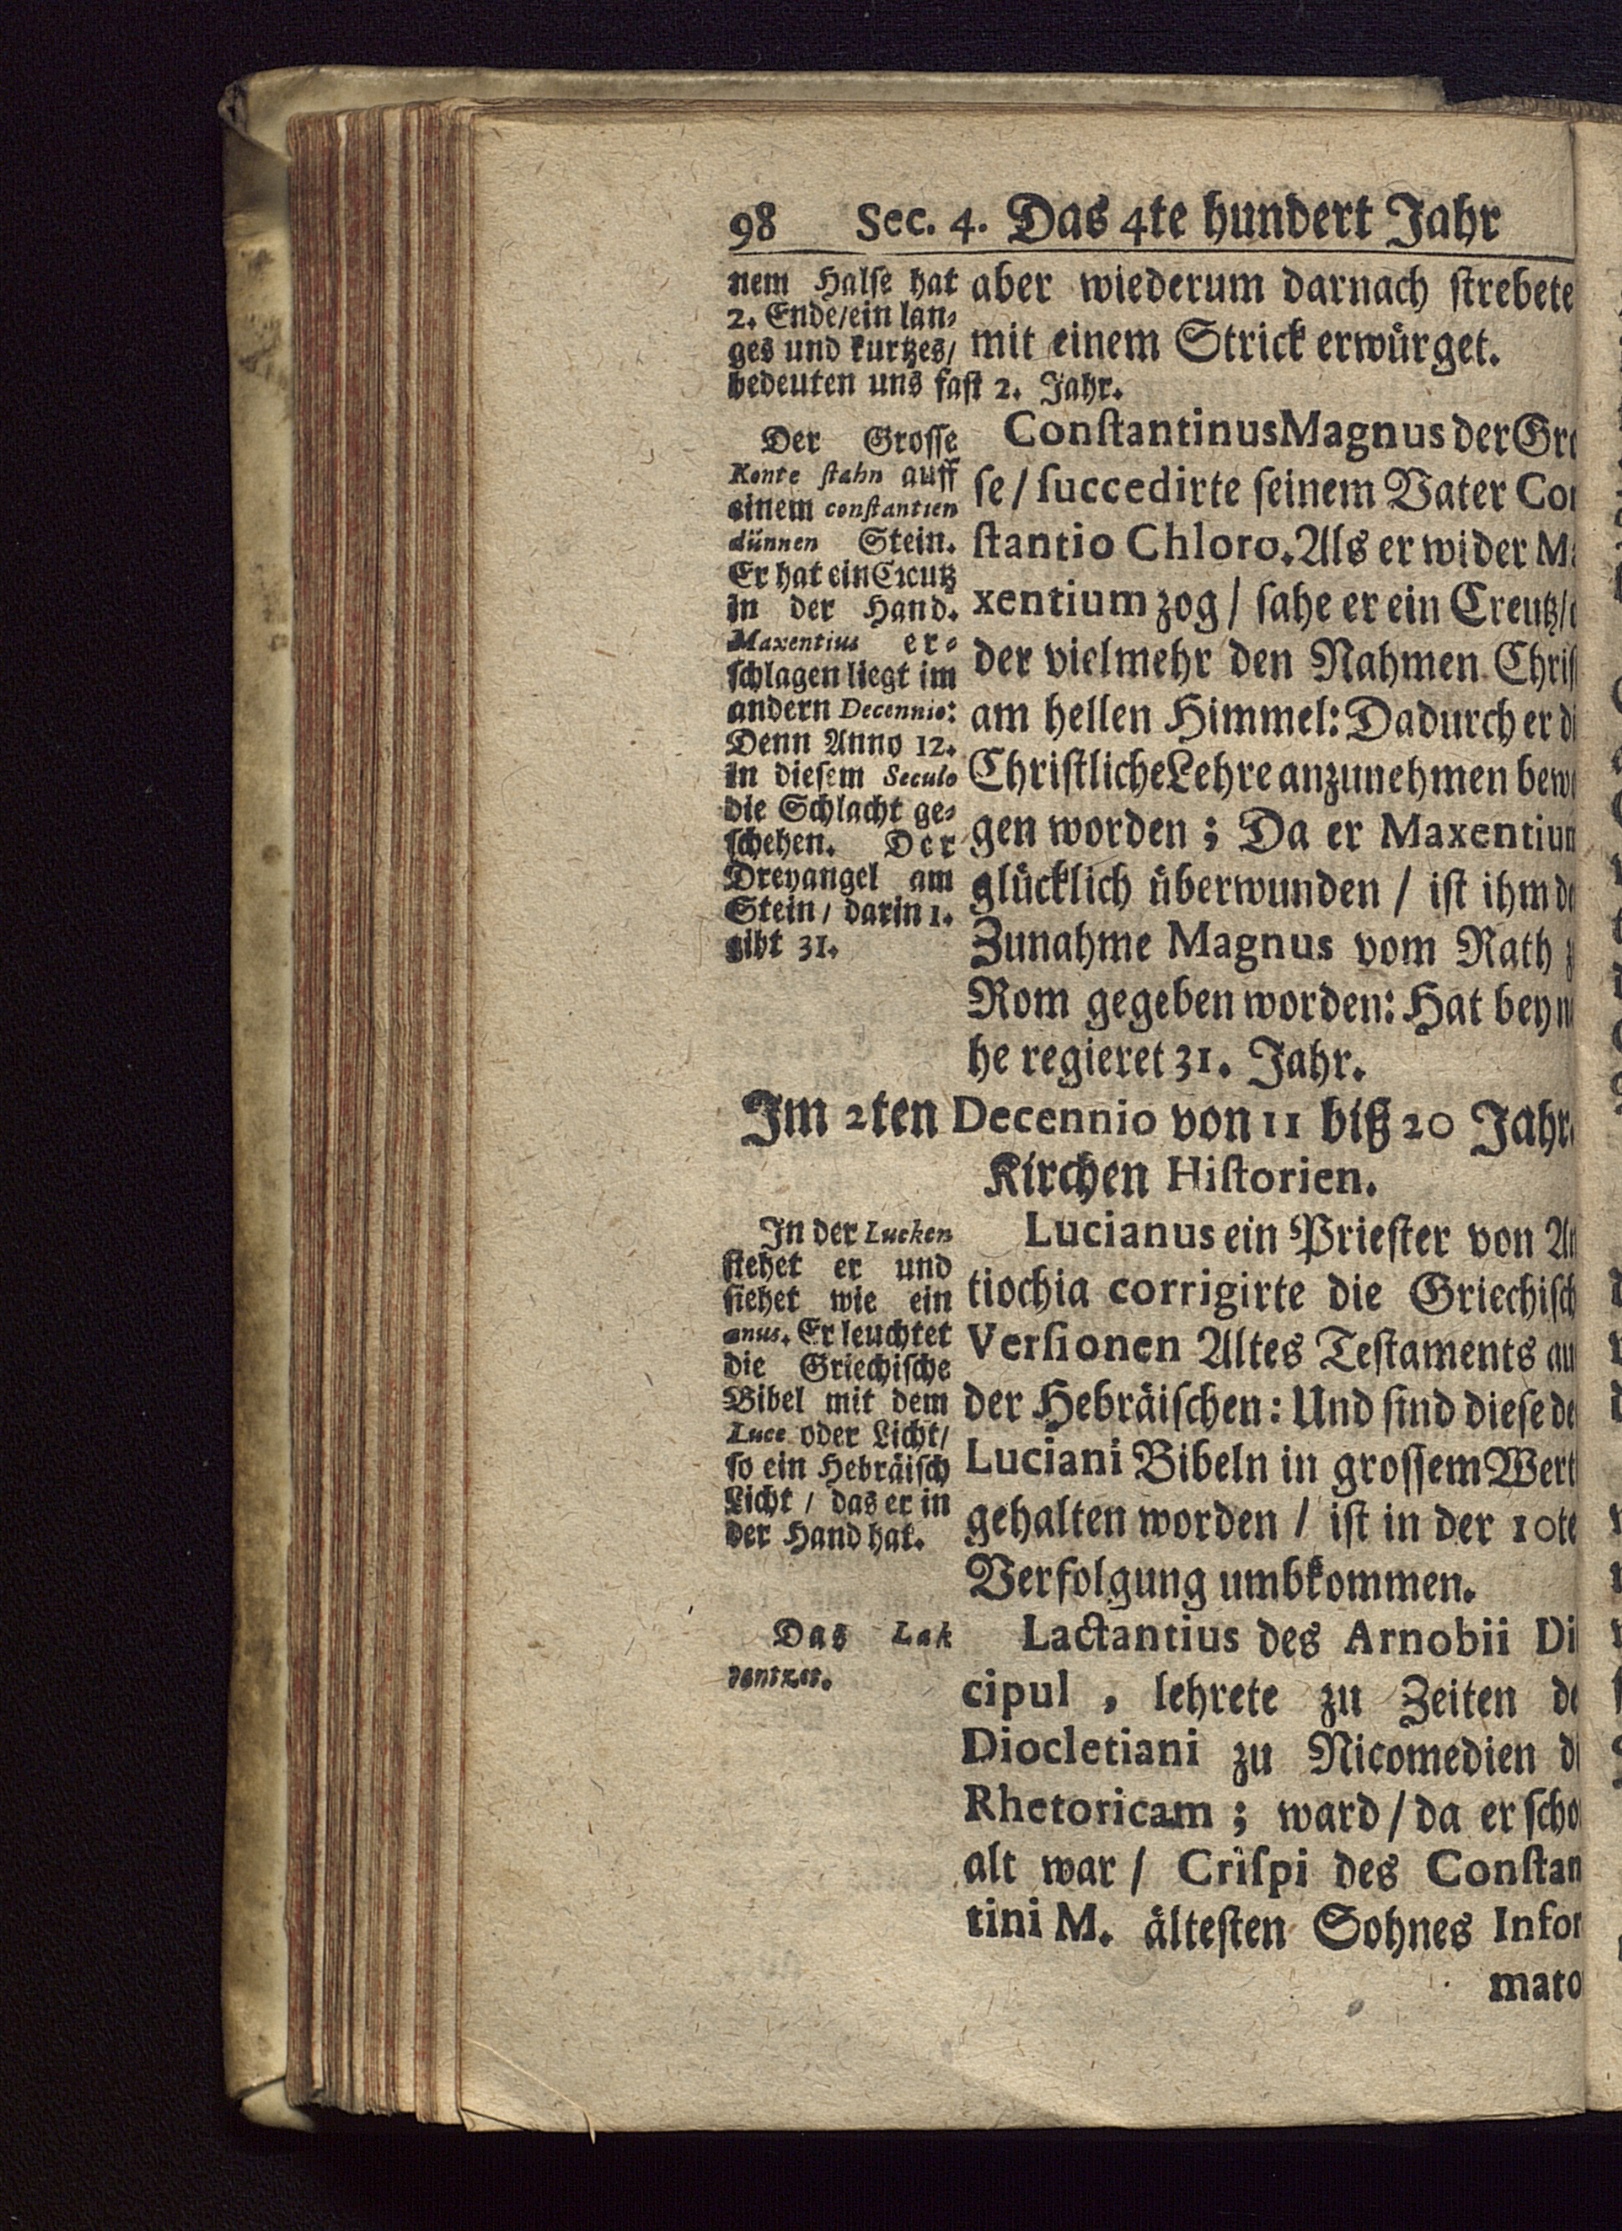 98 Sec. 4. Das 4te hundert Jahr
nem Halſe hat
2. Ende/ein lan-
ges und kurtzes/
bedeuten uns faſt 2. Jahr.
aber wiederum darnach ſtrebete
mit einem Strick erwürget.
Der Groſſe
Konte ſtahn auff
einem conſtantien
dünnen Stein.
Er hat ein Creutz
in der Hand.
Maxentius er-
ſchlagen liegt im
andern Decennio:
Denn Anno 12.
in dieſem Seculo
die Schlacht ge-
ſchehen. Der
Dreyangel am
Stein/ darin 1.
gibt 31.
Conſtantinus Magnus der Gro
ſe/ ſuccedirte ſeinem Vater Con
ſtantio Chloro. Als er wider Ma
xentium zog/ ſahe er ein Creutz/
der vielmehr den Nahmen Chriſ
am hellen Himmel: Dadurch er di
Chriſtliche Lehre anzunehmen bewe
gen worden; Da er Maxentium
glücklich überwunden / iſt ihm de
Zunahme Magnus vom Rath z
Rom gegeben worden: Hat beyna
he regieret 31. Jahr.
Im 2ten Decennio von 11 biß 20 Jahr
Kirchen Hiſtorien.
In der Lucken
ſtehet er und
ſiehet wie ein
anus. Er leuchtet
die Griechiſche
Bibel mit dem
Luce oder Licht/
ſo ein Hebräiſch
Licht / das er in
der Hand hat.
Lucianus ein Prieſter von An
tiochia corrigirte die Griechiſch
Verſionen Altes Teſtaments au
der Hebräiſchen: Und ſind dieſe de
Luciani Bibeln in groſſem Wert
gehalten worden / iſt in der 10te
Verfolgung umbkommen.
Das Lak
Lactantius des Arnobii Di
cipul, lehrete zu Zeiten de
Diocletiani zu Nicomedien di
Rhetoricam; ward/ da er ſcho
alt war/ Criſpi des Conſtan
tini M. älteſten Sohnes Infor
mato